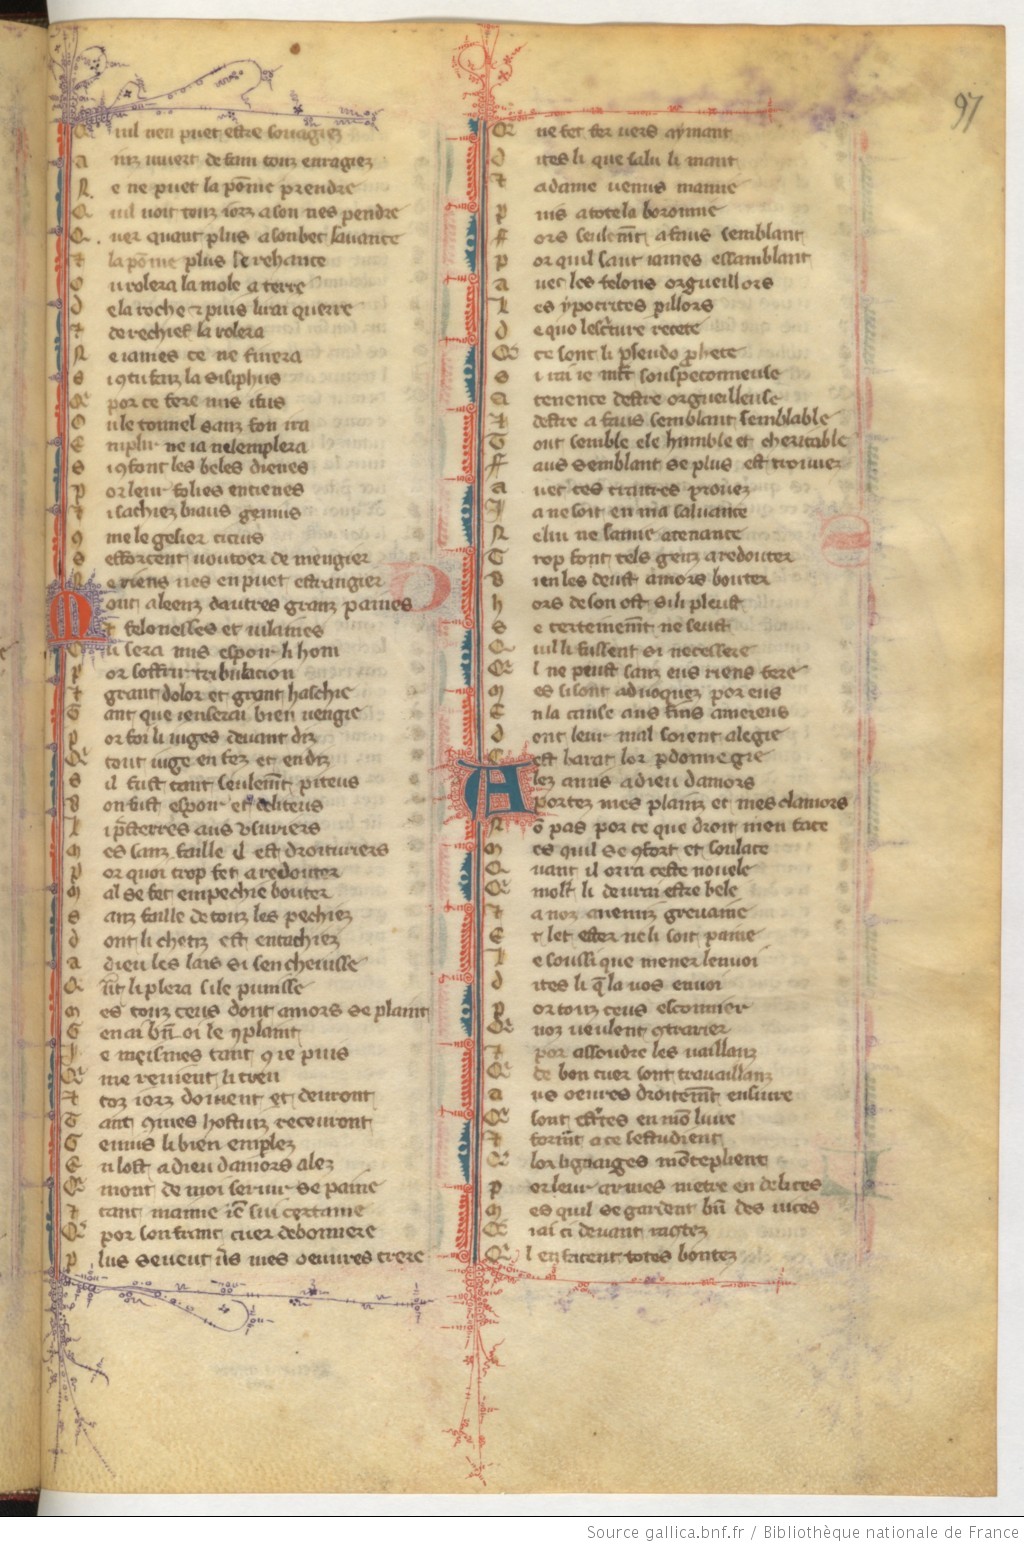 97
Qu il nen puet estre souagiez
A inz muert de fain touz enragiez
N e ne puet la pōme prendre
Q uil uoit touz iorz a son nes pendre
Q uer quant plus a son bec sauance
t la pōme plus se rehauce
O u rolera la mole a terre
d e la roche et puis lirai querre
t de rechief la rolera
N e iames ce ne finera
s i 9 tu faiz la sisiphus
Q por ce fere mis i fus
O u le tonnel sanz fon ira
E mplir ne ia nelemplera
s i 9 font les beles dienes
p or leur folies encienes
t i sachiez biaus genius
9 me le gesier cicius
s efforcent uoutoer de mengier
R e riens nes en puet estrangier
M out a leenz dautres granz paines
t felonesses et uilaines
O u sera mis espoir li hom
p or soffrir tribulacion
t grant dolor et grant haschie
T ant que ien serai bien uengie
p or foi li uiges deuant diz
Q tout iuge en fez et en diz
s il fust tant seulemt piteus
B on fust espoir et deliteus
L i psterres aus vsuriers
m es sanz faille il est droituriers
p or quoi trop fet a redouter
m al se fet empechie bouter
s anz faille de touz les pechiez
d ont li chetiz est entachiez
a dieu les lais si sen cheuisse
Q nt li plera si le punisse
m es touz ceus dont amors se plaint
G en ai bn oi le 9plaint
J e meismes tant 9 ie puis
Q me reuient li treu
t toz iorz doiuent et deuront
T ant 9 mes hostuiz receuront
G enius li bien emplez
E n lost a dieu damors alez
Q mont de moi seruir se paine
t tant maime ien sui certaine
Q por son franc cuer debonnere
p lus seueut uers mes oeuures trere
Q ue fet fer uers aymant
d ites li que salu li mant
t a dame uenus mamie
p uis a tote la baronnie
f ors seulemt a faus semblant
p or quil saut iames essamblant
a uec les felons orgueillors
L es ypocrites pillors
d e quo lescture recete
Q ce sont li pseudo phete
s i rai ie mlt souspeconneuse
A tenence destre orgueilleuse
t destre a faus semblant semblable
T out semble ele humble et cheritable
F aus semblant se plus est trouuez
a uec ces traitres prouez
J a ne soit en ma saluance
N e lui ne samie atenance
T rop font tels genz a redouter
B ien les deust amors bouter
h ors de son ost si li pleust
s e certenemt ne seust
Q uil li fussent si necessere
Q l ne peust sanz eus riens fere
m es si sont aduoquez por eus
E n la cause aus fins amereus
d ont leur mal soient alegie
C est barat lor pdonne gie
A lez amis a dieu damors
portez mes plainz et mes clamors
N ō pas por ce que droit men face
m es quil se 9fort et soulace
Q uant il orra ceste nouele
Q molt li deurai estre bele
t a noz anemiz greuaine
E t let ester ne li soit paine
L e soussi que mener lenuoi
d ites li q la uos enuoi
p or touz ceus escomier
Q noz ueulent 9trarier
t por assoudre les uaillanz
Q de bon cuer sont trauaillanz
a us oeures droitemt ensiure
Q sont escrtes en mō liure
t formt a ce sestudient
Q lor lignaiges mōteplient
p or leur armes metre en delices
m es quil se gardent bn des uices
Q iai ci deuant racōtez
Q l en facent totes bontez
Source gallica.bnf.fr / Bibliothèque nationale de France